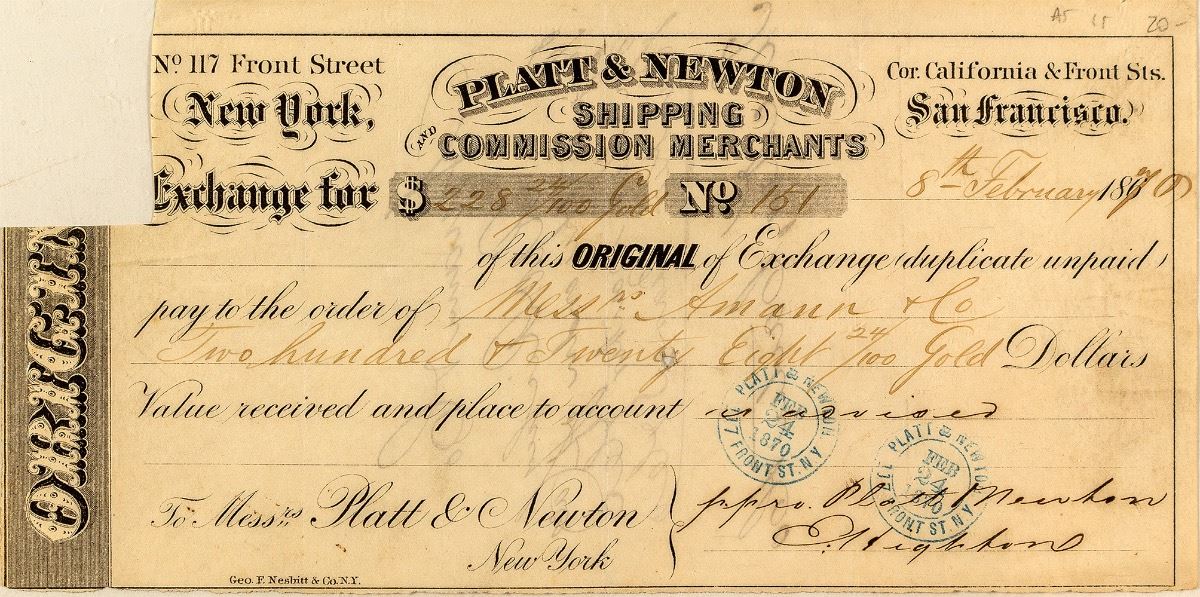 A5 15 20-
No 117 Front Street
New York,
PLATT & NEWTON
SHIPPING
AND COMMISSION MERCHANTS
Cor. California & Front Sts.
San Francisco.
Exchange for $ 228 24/100 Gold No. 151 8th February 1870
of this ORIGINAL of Exchange (duplicate unpaid)
pay to the order of Messrs. Amann & Co
Two hundred & Twenty Eight 24/100 Gold Dollars
Value received and place to account as advised
To Messrs Platt & Newton
New York
ppro. Platt & Newton
C. Highton
Geo. F. Nesbitt & Co. N.Y.
PLATT & NEWTON
FEB
24
1870
117 FRONT ST. N.Y
PLATT & NEWTON
FEB
24
1870
117 FRONT ST N.Y